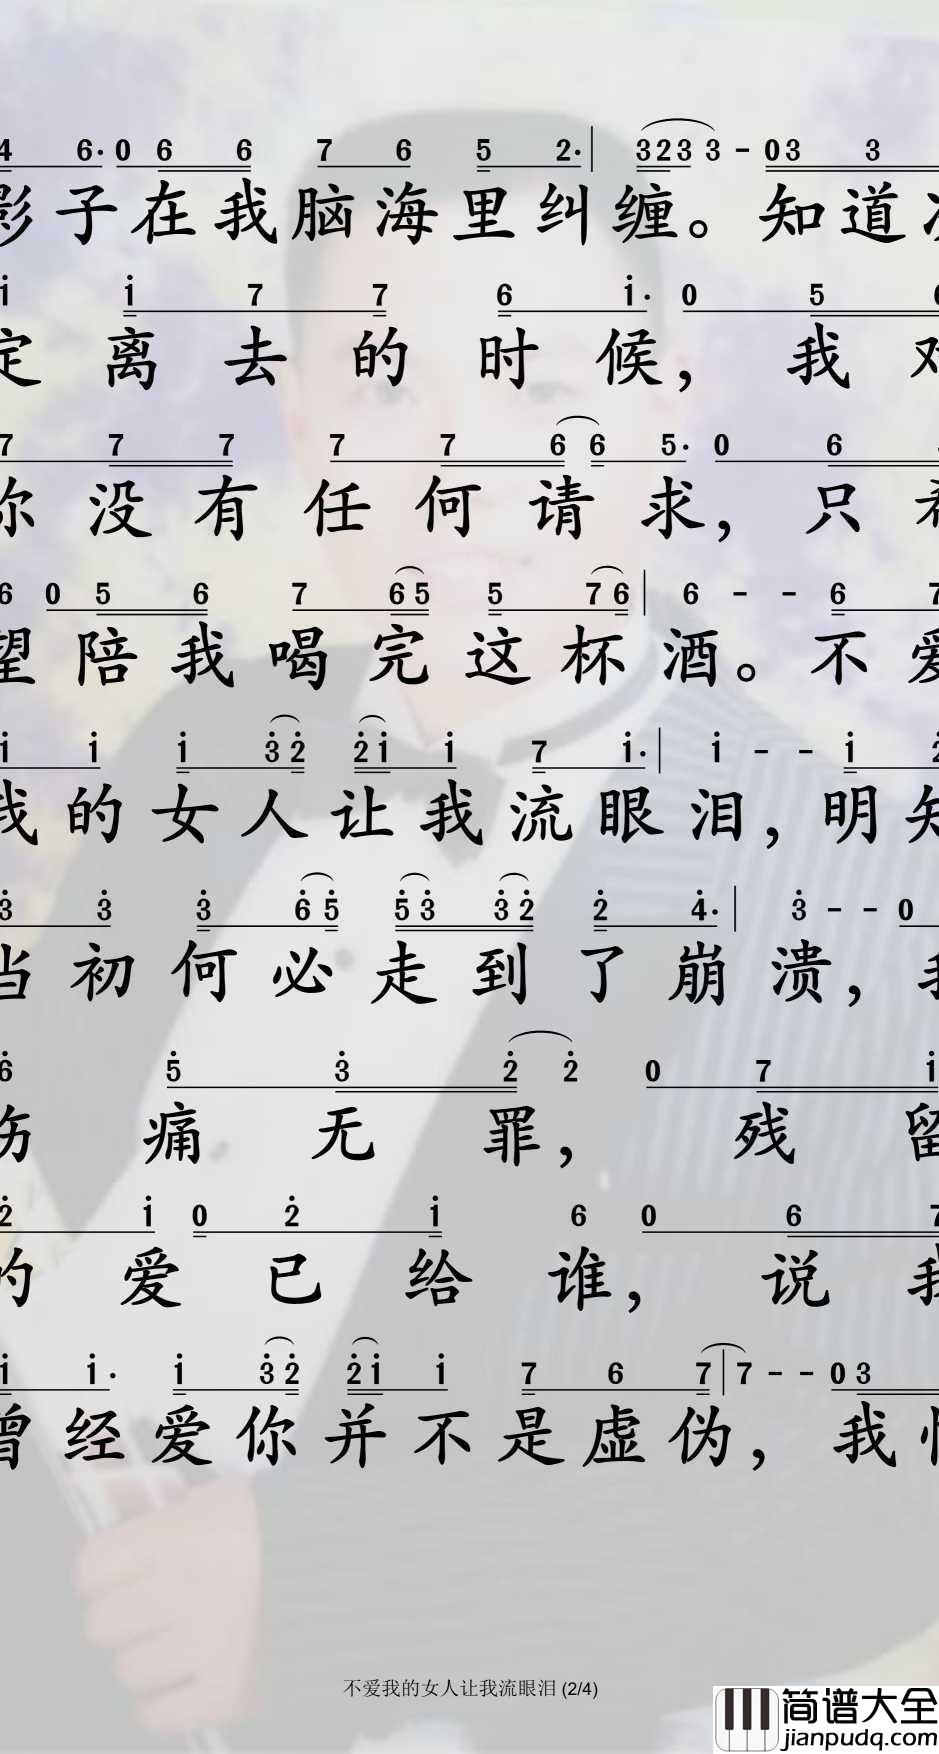 4 6· 0 6 6 7 6 5 2· | 3 2 3 3 - 0 3 3
影子在我脑海里纠缠。知道
1 1 7 7 6 1· 0 5 6
定离去的时候，我对
7 7 7 7 7 6 6 5· 0 6
你没有任何请求，只希
6 0 5 6 7 6 5 5 7 6 | 6 - - 6 7
望陪我喝完这杯酒。不爱
1 1 1 3 2 2 1 1 7 1· | 1 - - 1 2
我的女人让我流眼泪，明知
3 3 3 6 5 5 3 3 2 2 4· | 3 - - 0
当初何必走到了崩溃，我
6 5 3 2 2 0 7 1
伤痛无罪，残留
2 1 0 2 1 6 0 6 7
的爱已给谁，说我
1 1· 1 3 2 2 1 1 7 6 7 | 7 - - 0 3
曾经爱你并不是虚伪，我
不爱我的女人让我流眼泪 (2/4)
简谱大全
jianpudq.com